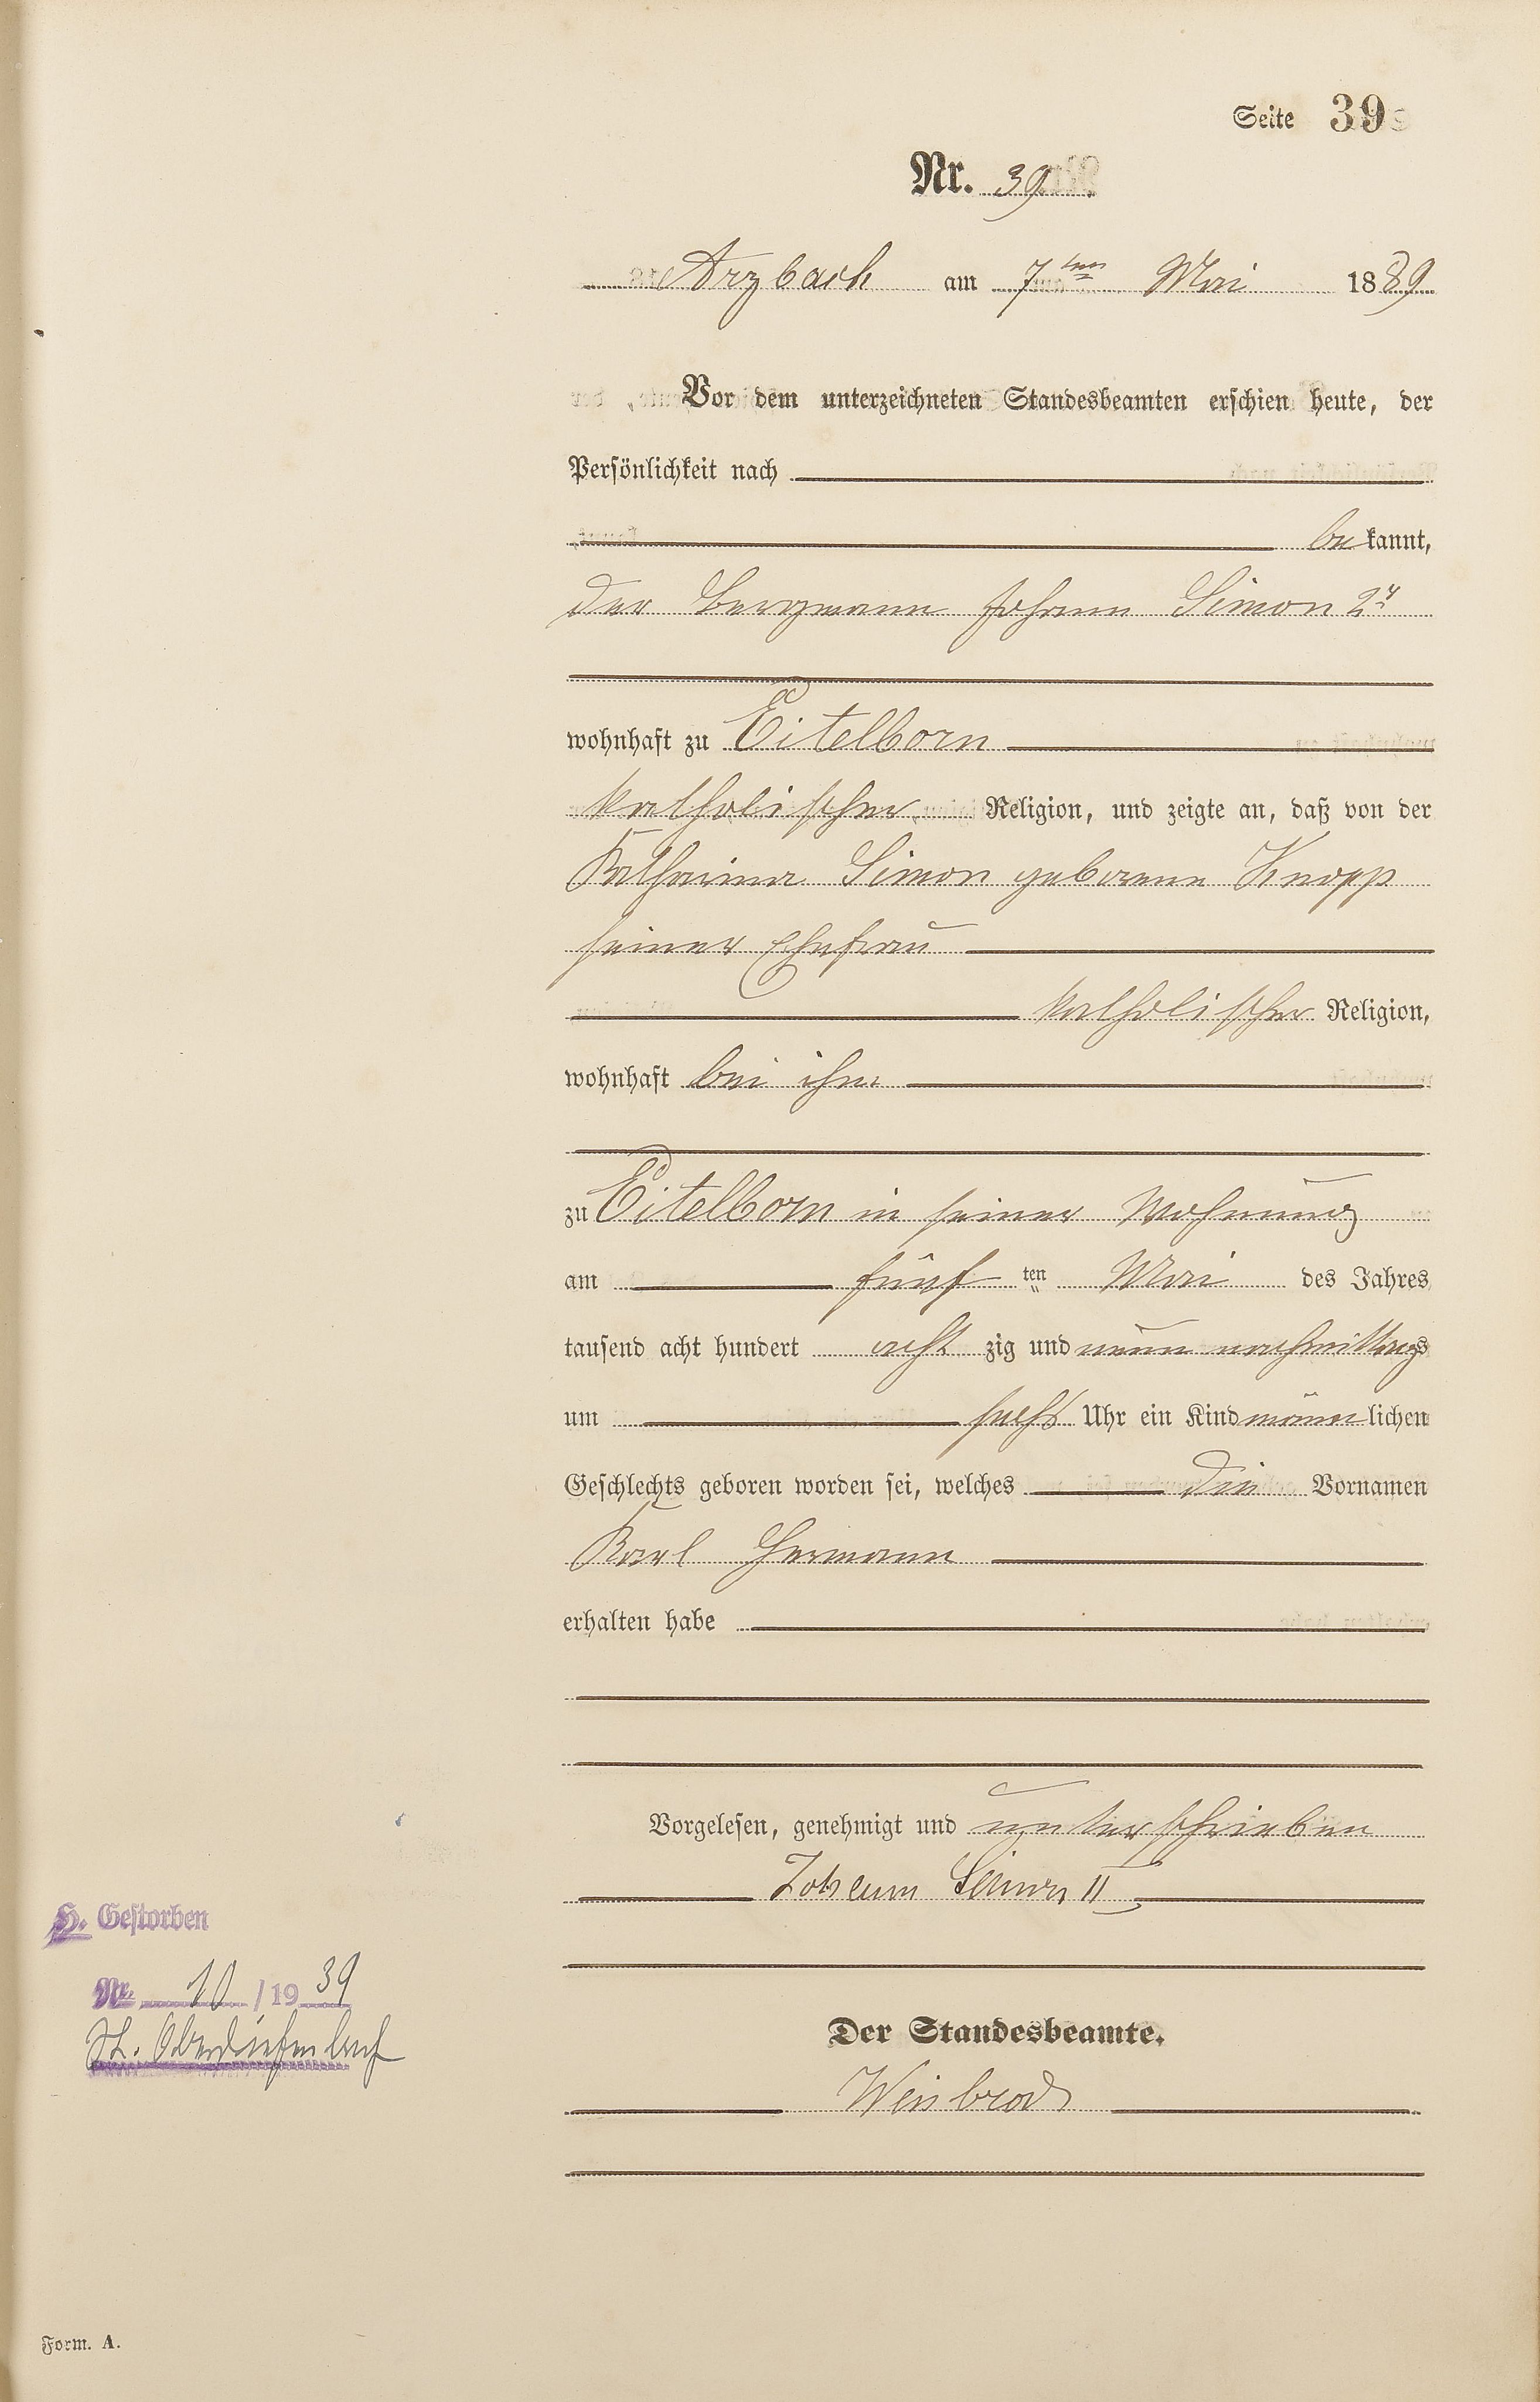 Seite 39
Nr. 39
Arzbach am 7ten Mai 1889
Vor dem unterzeichneten Standesbeamten erschien heute, der
Persönlichkeit nach
bekannt,
der Bergmann Johann Simon 2r
wohnhaft zu Eitelborn
katholischer Religion, und zeigte an, daß von der
Katharina Simon geborene Knopp
seiner Ehefrau
katholischer Religion,
wohnhaft bei ihm
zu Eitelborn in seiner Wohnung
am fünf ten Mai des Jahres
tausend acht hundert acht zig und neun nachmittags
um sechs Uhr ein Kind männlichen
Geschlechts geboren worden sei, welches die Vornamen
Karl Hermann
erhalten habe
Vorgelesen, genehmigt und unterschrieben
Johann Simon II
H. Gestorben
Nr. 10/1939
St.
Der Standesbeamte.
Weisbrod
Form. A.